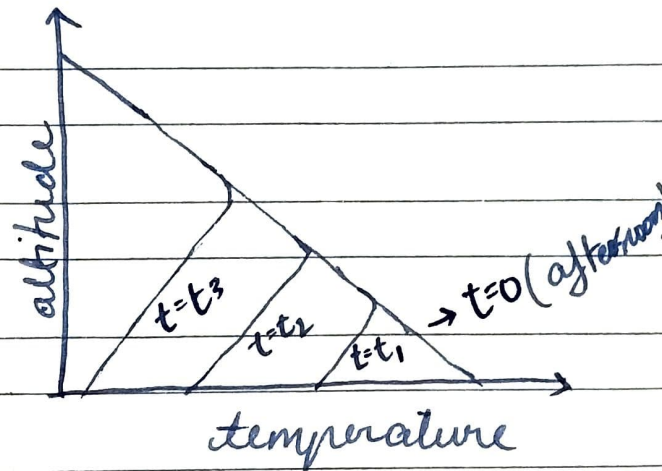 altitude
t=t3
t=t2
t=t1
→ t=0 (afternoon)
temperature